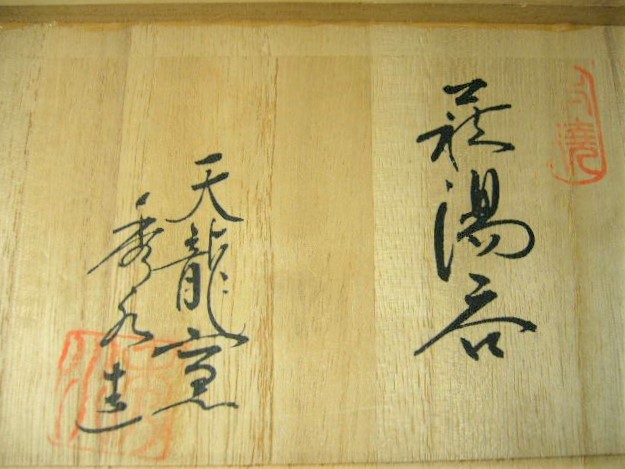 萩湯呑
天龍窯
秀
造